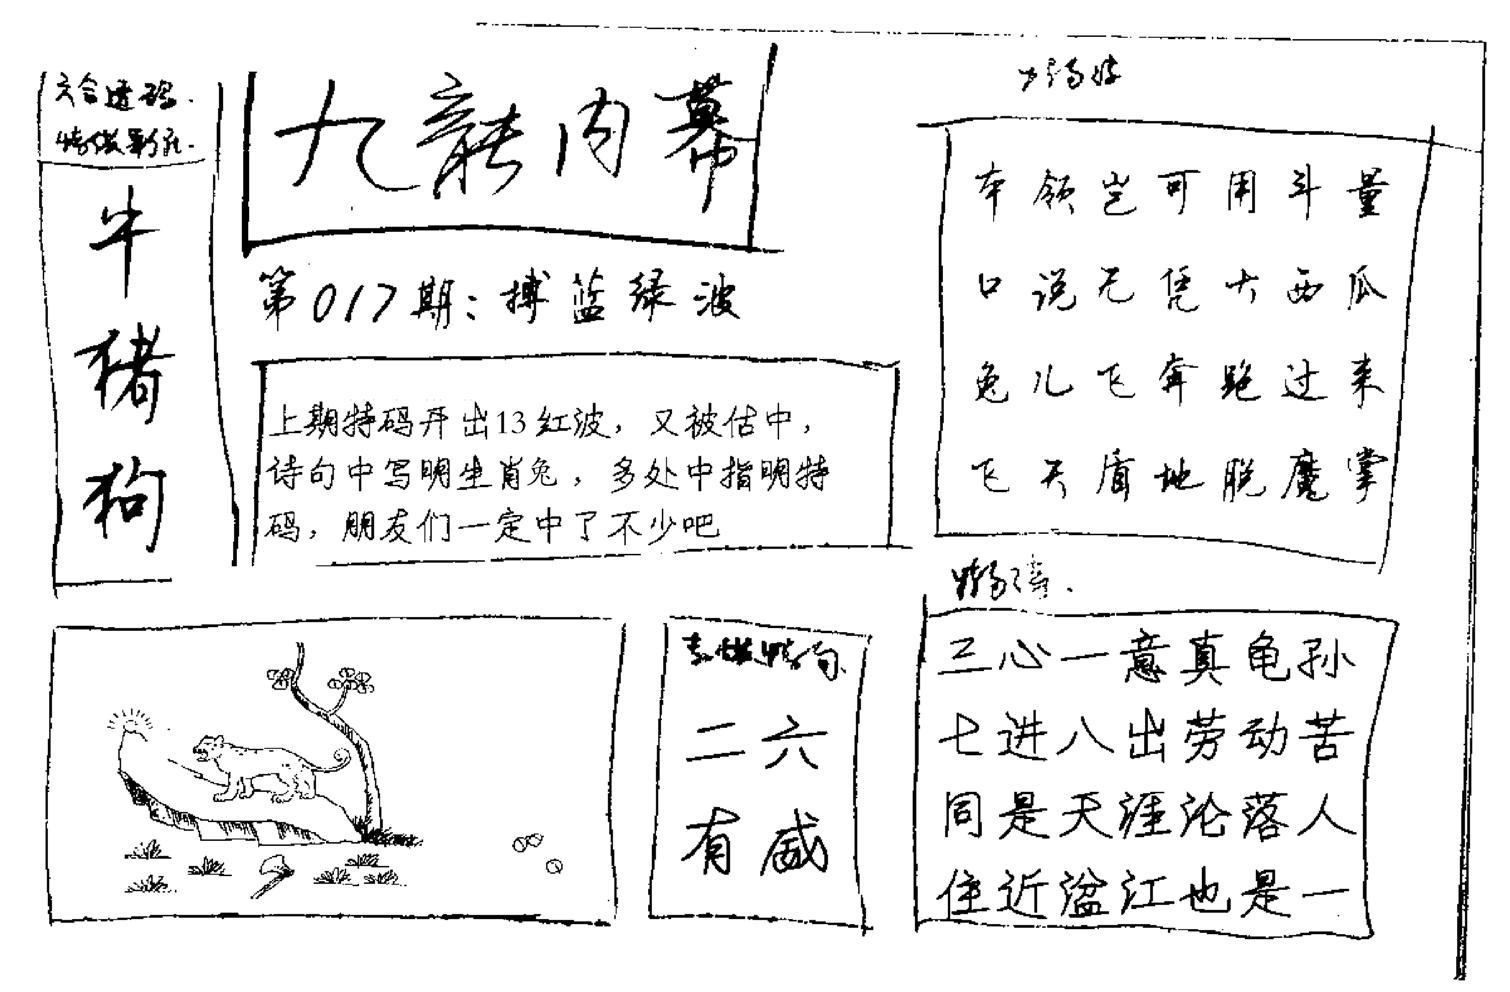 六合透码.
牛
猪
狗
九龍内幕
第017期：搏蓝绿波
上期特码开出13红波，又被估中，
诗句中写明生肖兔，多处中指明特
码，朋友们一定中了不少吧
本领岂可用斗量
口说无凭大西瓜
兔儿飞奔跑过来
飞天盾地脱魔掌
二六
有威
三心一意真龟孙
七进八出劳动苦
同是天涯沦落人
住近湓江也是一